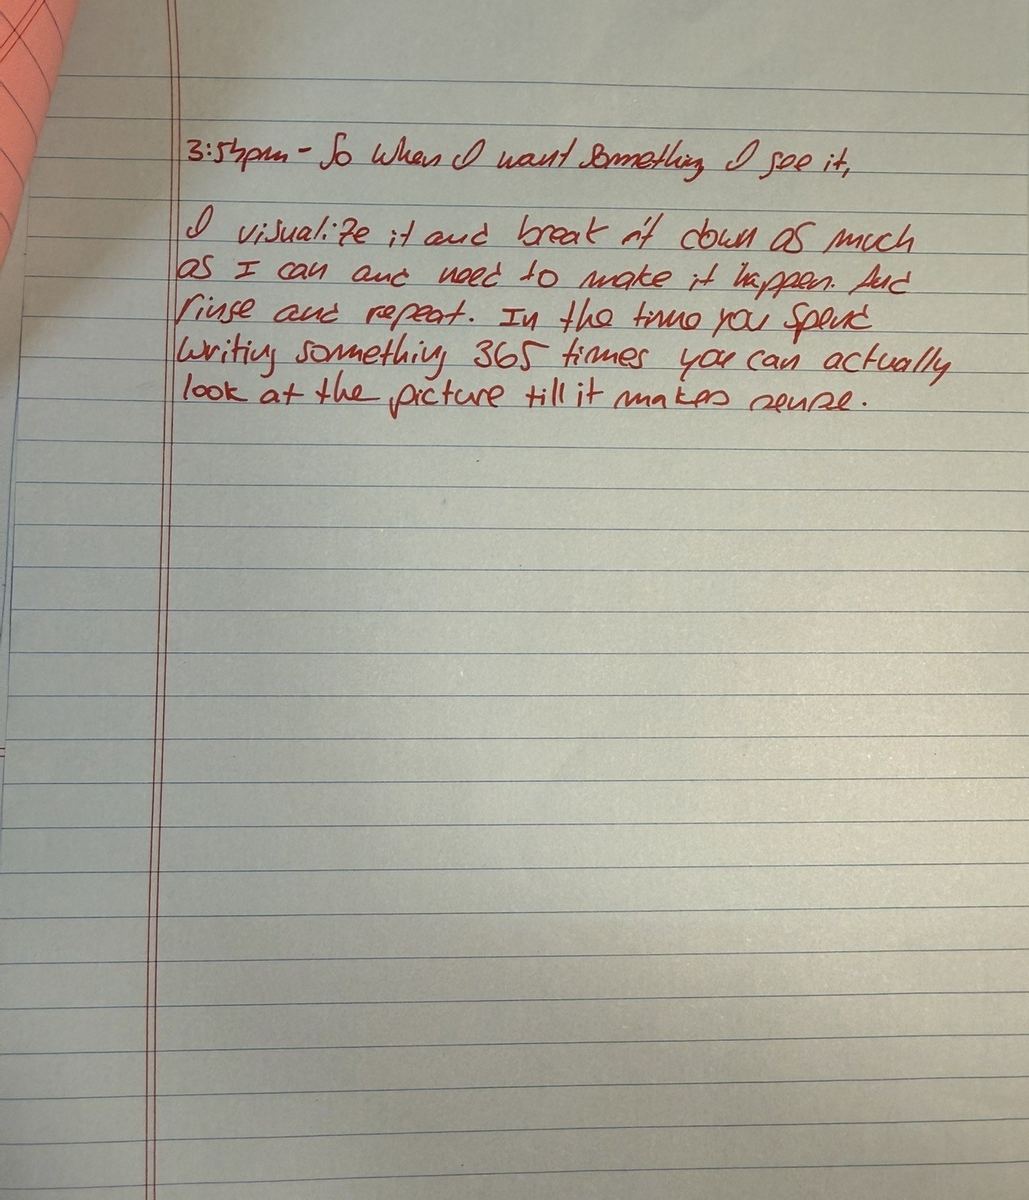 3:54pm - So when I want something I see it,
I visualize it and break it down as much
as I can and need to make it happen. And
rinse and repeat. In the time you spend
writing something 365 times you can actually
look at the picture till it makes sense.